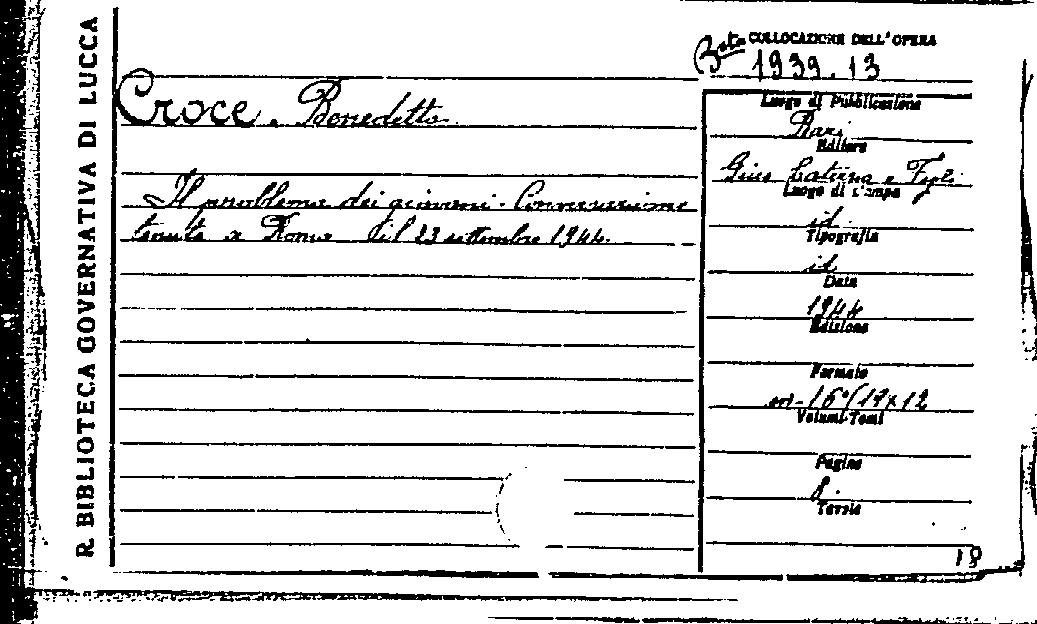 R. BIBLIOTECA GOVERNATIVA DI LUCCA
COLLOCAZIONE DELL'OPERA
Bsta 1939.13
Croce. Benedetto
Il problema dei giovani. Conversazione
tenuta a Roma il 23 settembre 1944.
Luogo di Pubblicazione
Bari
Editore
Gius Laterza e Figli
Luogo di stampa
id.
Tipografia
id
Data
1944
Edizione
Formato
in-16°(19x12
Volumi-Tomi
Pagine
8.
Tavole
18